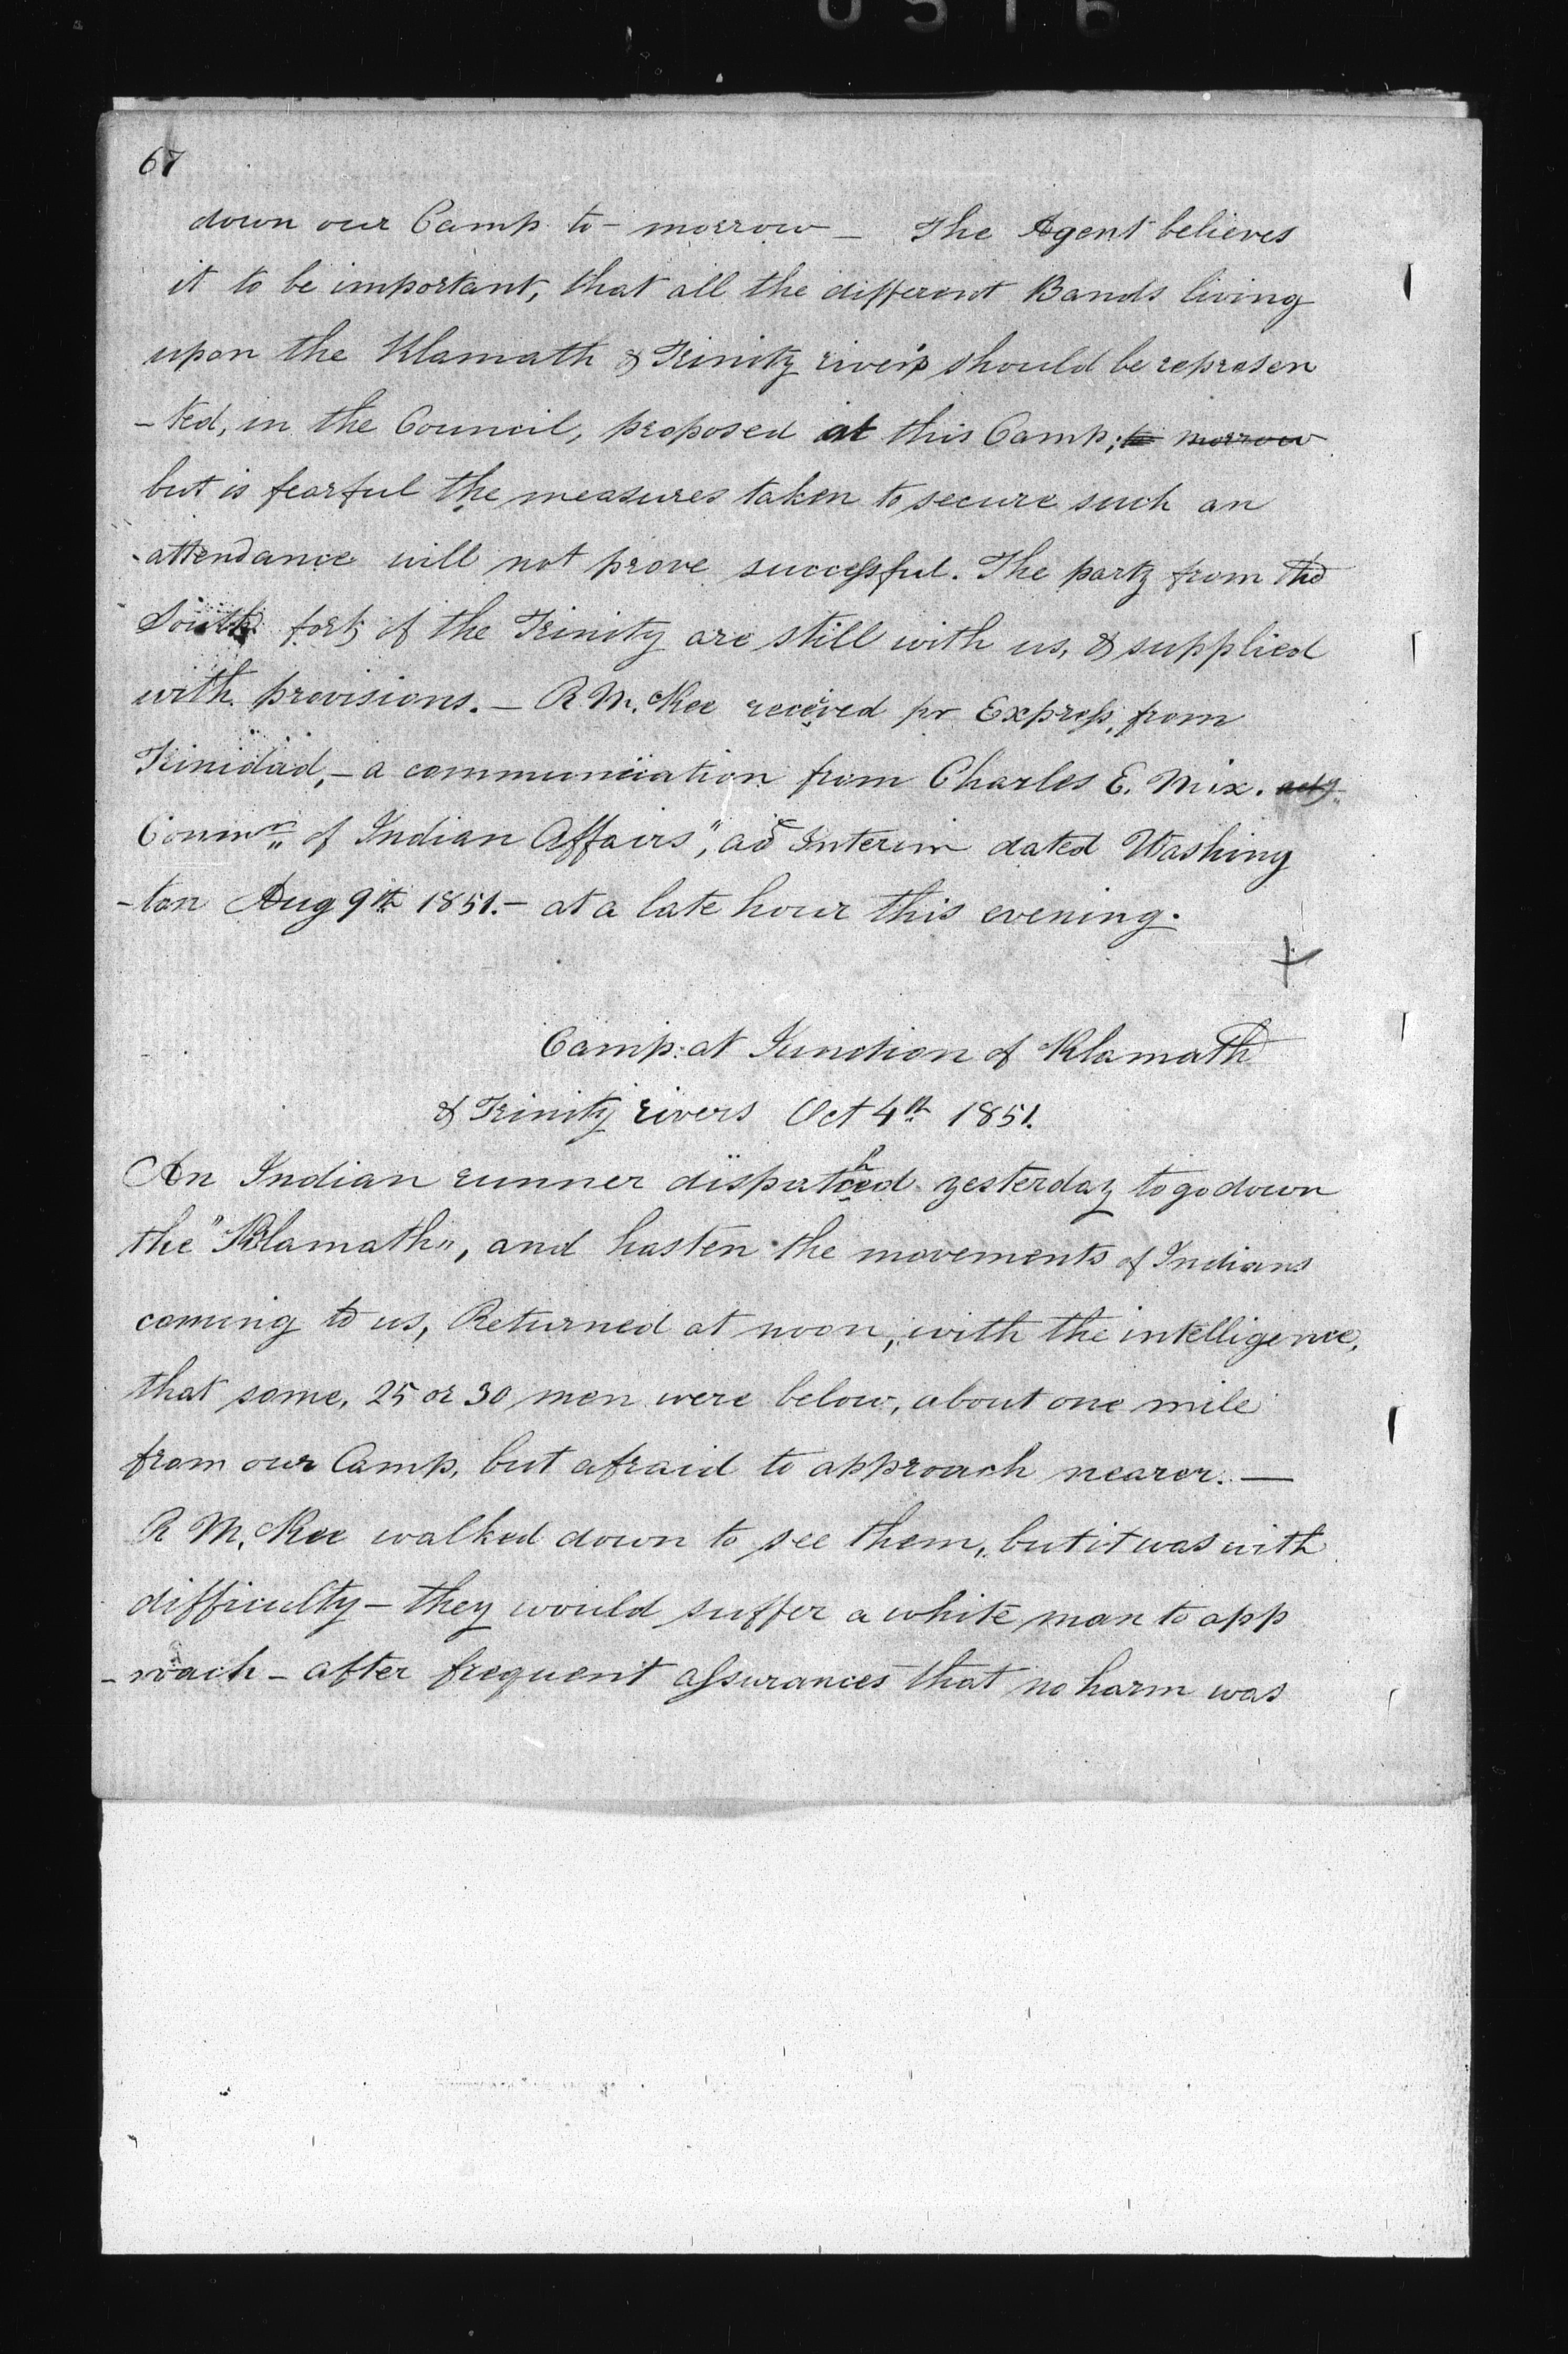 67
down our Camp to-morrow — The Agent believes
it to be important, that all the different Bands living
upon the Klamath & Trinity rivers should be represen
-ted, in the Council, proposed at this Camp; to morrow
but is fearful the measures taken to secure such an
attendance will not prove successful. The party from the
South fork of the Trinity are still with us, & supplied
with provisions. — R M.Kee received pr Express, from
Trinidad, — a communication from Charles E. Mix. actg
Commr. of Indian Affairs", ad Interim dated Washing
-ton Aug 9th 1851. — at a late hour this evening.
Camp at Junction of Klamath
& Trinity rivers Oct 4th 1851.
An Indian runner dispatched yesterday to go down
the "Klamath", and hasten the movements of Indians
coming to us, Returned at noon, with the intelligence,
that some, 25 or 30 men were below, about one mile
from our Camp, but afraid to approach nearer. —
R M.Kee walked down to see them, but it was with
difficulty — they would suffer a white man to app
-roach — after frequent assurances that no harm was